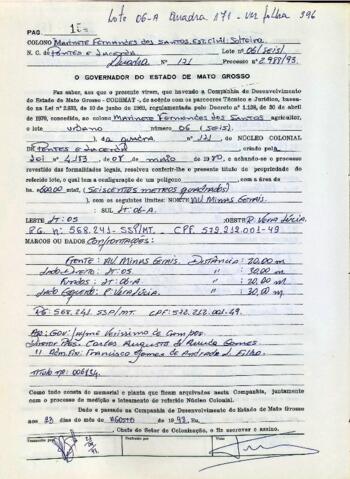 Lote 06-A Quadra 171 - ver folha 396
PAG.
COLONO Marinete Fernandes dos Santos, Est. Civil: Solteira
N. C. de Pontes e Lacerda Lote nº 06 (seis).
Quadra Nº 121 Processo nº 2988/93.
O GOVERNADOR DO ESTADO DE MATO GROSSO
Faz saber, aos que o presente virem, que havendo a Companhia de Desenvolvimento
do Estado de Mato Grosso - CODEMAT -, de acordo com os pareceres Técnico e Jurídico, basea-
1979, concedido, ao colono Marinete Fernandes dos Santos agricultor,
o lote urbano número 06 (seis).
) da quadra nº 121, DO NÚCLEO COLONIAL
DE Pontes e Lacerda criado pela
Lei nº 4.153, de 08 de maio de 1980, e achando-se o processo
revestido das formalidades legais, resolveu conferir-lhe o presente título de propriedade
do referido lote, o qual tem a configuração de um polígono, com a área de
ha. 600,00 mts², (Seiscentos metros quadrados)
), com os seguintes limites: NORTE AV. Minas Gerais.
: SUL LT: 06-A.
LESTE LT: 05 :OESTE R. Vera Lúcia.
R.G. nº: 568.241-SSP/MT. CPF. 572.212.001-49
MARCOS OU DADOS Confrontações:
Frente: AV. Minas Gerais. Distância: 20,00 m
Lado Direito: LT: 05 " : 30,00 m
Fundos: LT: 06-A " : 20,00 m
Lado Esquerdo: R. Vera Lúcia. " : 30,00 m
RG: 568.241. SSP/MT. CPF: 572.212.001.49.
Gov: Jayme Verissimo de Campos.
Diretor Pres. Carlos Augusto de Arruda Gomes
" Adm. Fin. Francisco Gomes de Andrade L. Filho.
Título nº: 006134.
Como tudo consta do memorial e planta que ficam arquivados nesta Companhia, juntamente
com o processo de medição e loteamento do referido Núcleo Colonial.
Dado e passado na Companhia de Desenvolvimento do Estado de Mato Grosso
aos 23 dias do mês de Agosto de 1993, Eu,
, Chefe do Setor de Colonização, o fiz escrever e assino.